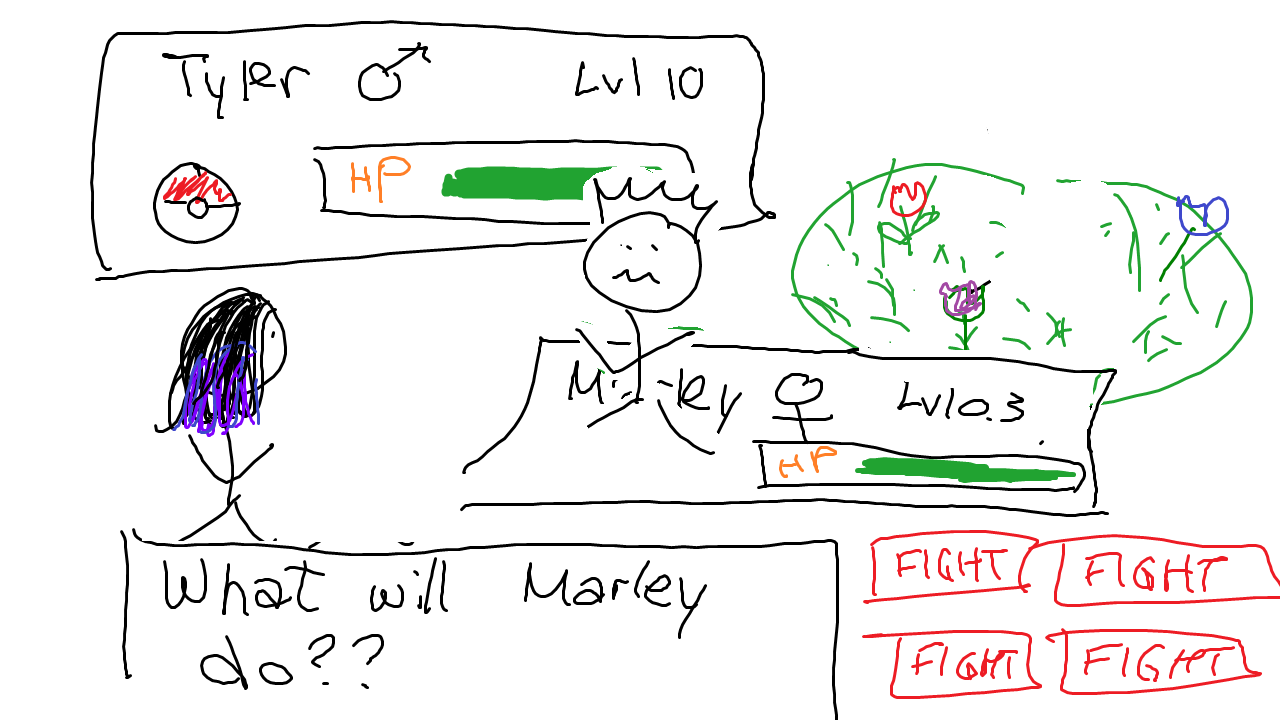 Tyler ♂ Lvl 10
HP
Lvl 0.3
HP
What will Marley
do??
FIGHT FIGHT
FIGHT FIGHT